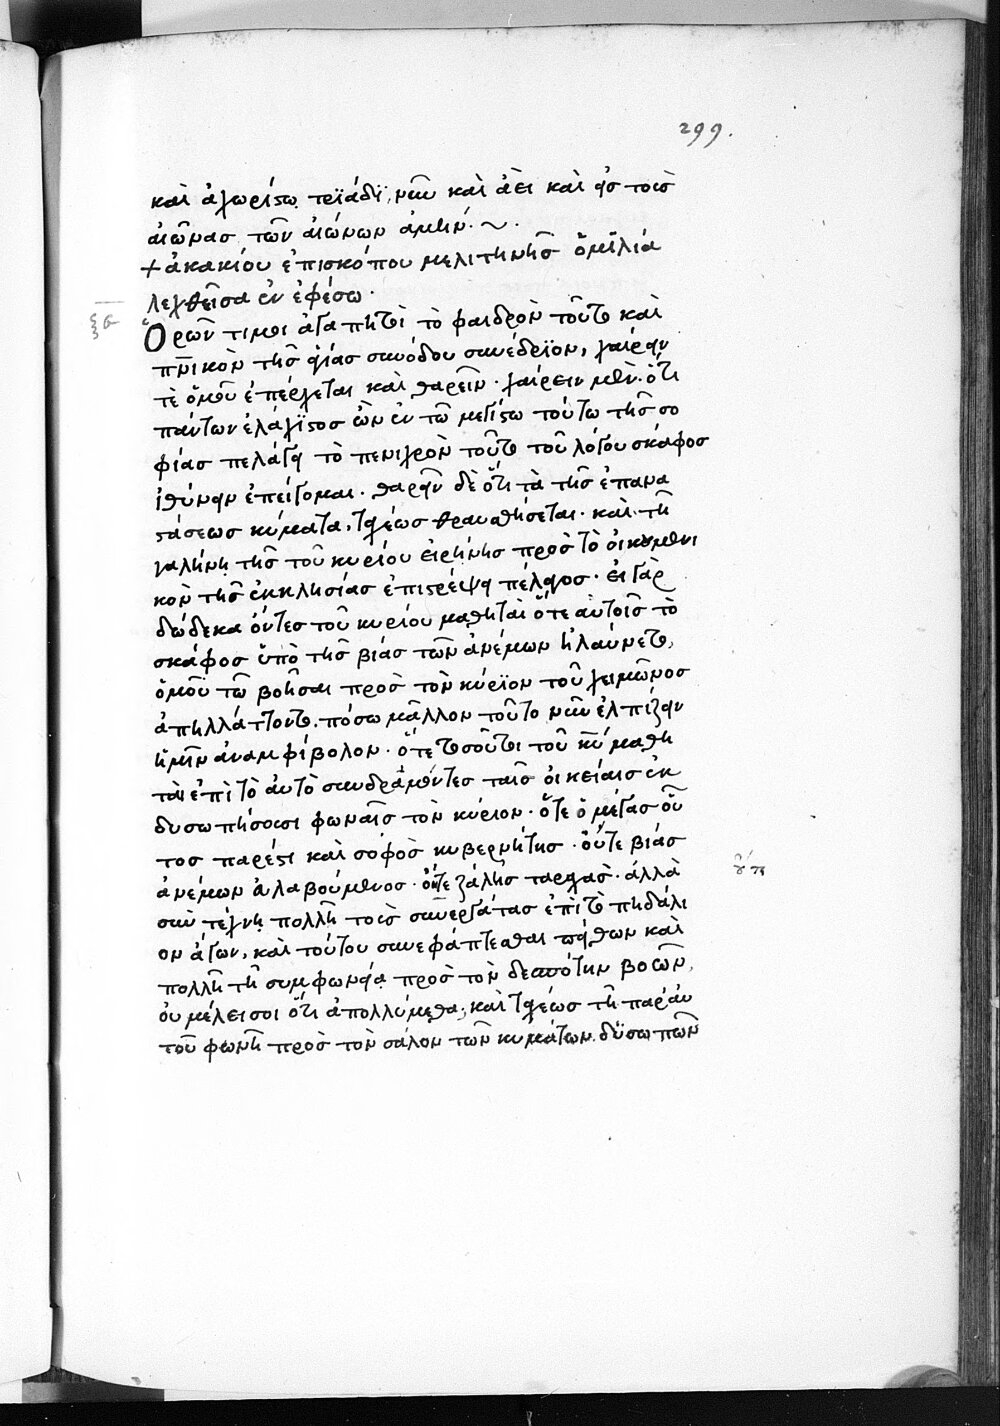 299.
καὶ ἀχωρίστω τριάδϊ, νῦν καὶ ἀεὶ καὶ εἰσ τοὺσ
αἰῶνασ τῶν αἰώνων ἀμήν. ~ .
+ ἀκακίου ἐπισκόπου μελιτηνῆσ ὁμϊλία
λεχθεῖσα ἐν ἐφέσω.
Ὁρῶν τίμιοι ἀγαπητοὶ τὸ φαιδρὸν τοῦτο καὶ
πν̅ικὸν τῆσ ἁγίασ συνόδου συνέδρϊον, χαίρειν
τὲ ὁμοῦ ἐπέρχεται καὶ θαρεῖν. χαίρειν μὲν. ὅτι
πάντων ἐλάχϊστοσ ὢν ἐν τῶ μεγίστω τούτω τῆσ σο
φίασ πελάγει τὸ πενιχρὸν τοῦτο τοῦ λόγου σκάφοσ
ἰθύνειν ἐπείγομαι. θαρεῖν δὲ ὅτι τὰ τῆσ ἐπανα
στάσεωσ κύματα, ταχέωσ θραυσθήσεται. καὶ τῆ
γαλήνη τῆσ τοῦ κυρίου εἰρήνησ πρὸσ τὸ οἰκουμενι
κὸν τῆσ ἐκκλησίασ ἐπιστρέψει πέλαγοσ. εἰ γὰρ
δώδεκα ὄντεσ τοῦ κυρίου μαθηταὶ ὅτε αὐτοῖσ τὸ
σκάφοσ ὑπὸ τῆσ βιάσ τῶν ἀνέμων ἠλαύνετο,
ὁμοῦ τῶ βοῆσαι πρὸσ τὸν κύρϊον τοῦ χειμῶνοσ
ἀπηλλάττοντο. πόσω μᾶλλον τοῦτο νῦν ἐλπίζειν
ἡμῖν ἀναμφίβολον. ὅτε τοσοῦτοι τοῦ κ̅υ̅ μαθη
ταὶ ἐπὶ τὸ αὐτὸ συνδραμόντεσ ταῖσ οἰκείαισ ἐκ
δυσωπήσουσι φωναῖσ τὸν κύριον. ὅτε ὁ μέγασ οὗ
τοσ παρέστι καὶ σοφὸσ κυβερνήτησ. οὔτε βιάσ
ἀνέμων εὐλαβούμενοσ. οὔτε ζάλησ ταραχὰσ. ἀλλὰ
γ´π
σὺν τέχνη πολλῆ τοὺσ συνεργάτασ ἐπὶ τὸ πηδάλι
ον ἄγων, καὶ τούτου συνεφάπτεσθαι πείθων καὶ
πολλῆ τῆ συμφωνεία πρὸσ τὸν δεσπότην βοῶν,
οὐ μέλει σοι ὅτι ἀπολλύμεθα, καὶ ταχέωσ τῆ παρ᾽ αὐ
τοῦ φωνῆ πρὸσ τὸν σάλον τῶν κυμάτων. δϋσωπῶν